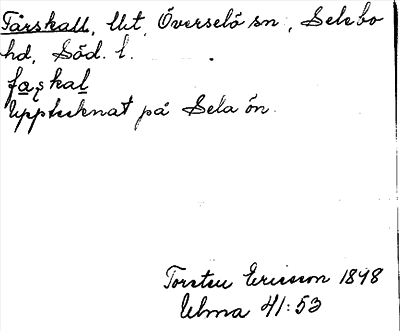 Fårskall, Ut, Överselö sn, Selebo
hd, Söd. l.
Upptecknat på Selaön.
Torsten Ericsson 1898
Ulma 41:53